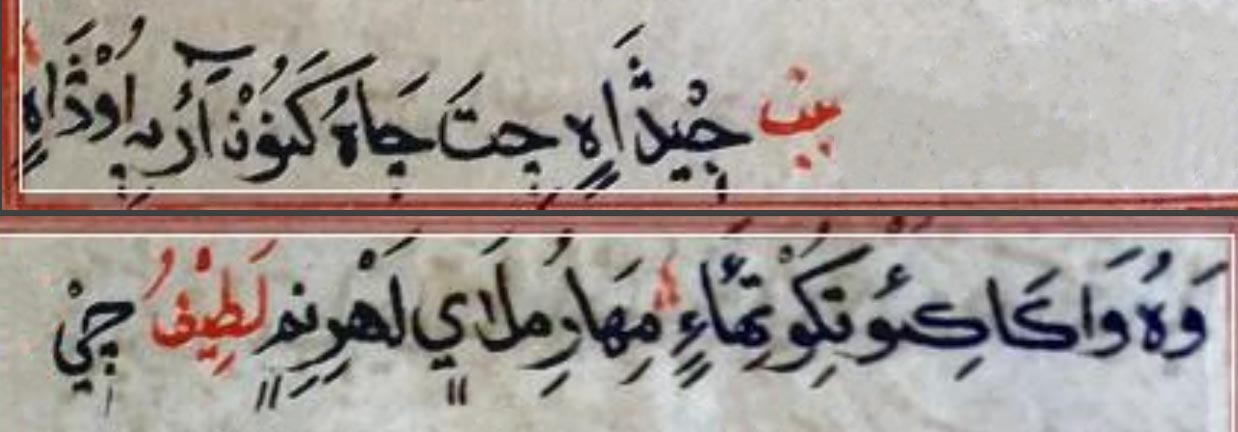 بيْت جِيْذَّاهِ جِتَ جَاهُ كَنُوْنْ آرُبِہ اُوْذَّاهٍ
وَهُ وَاكَا كِئَو نِكَوْ تهَاءٍ مِهَارِ مِلَايٍ لَهْرِنِمٍ لَطِيْفُ چٖيْ